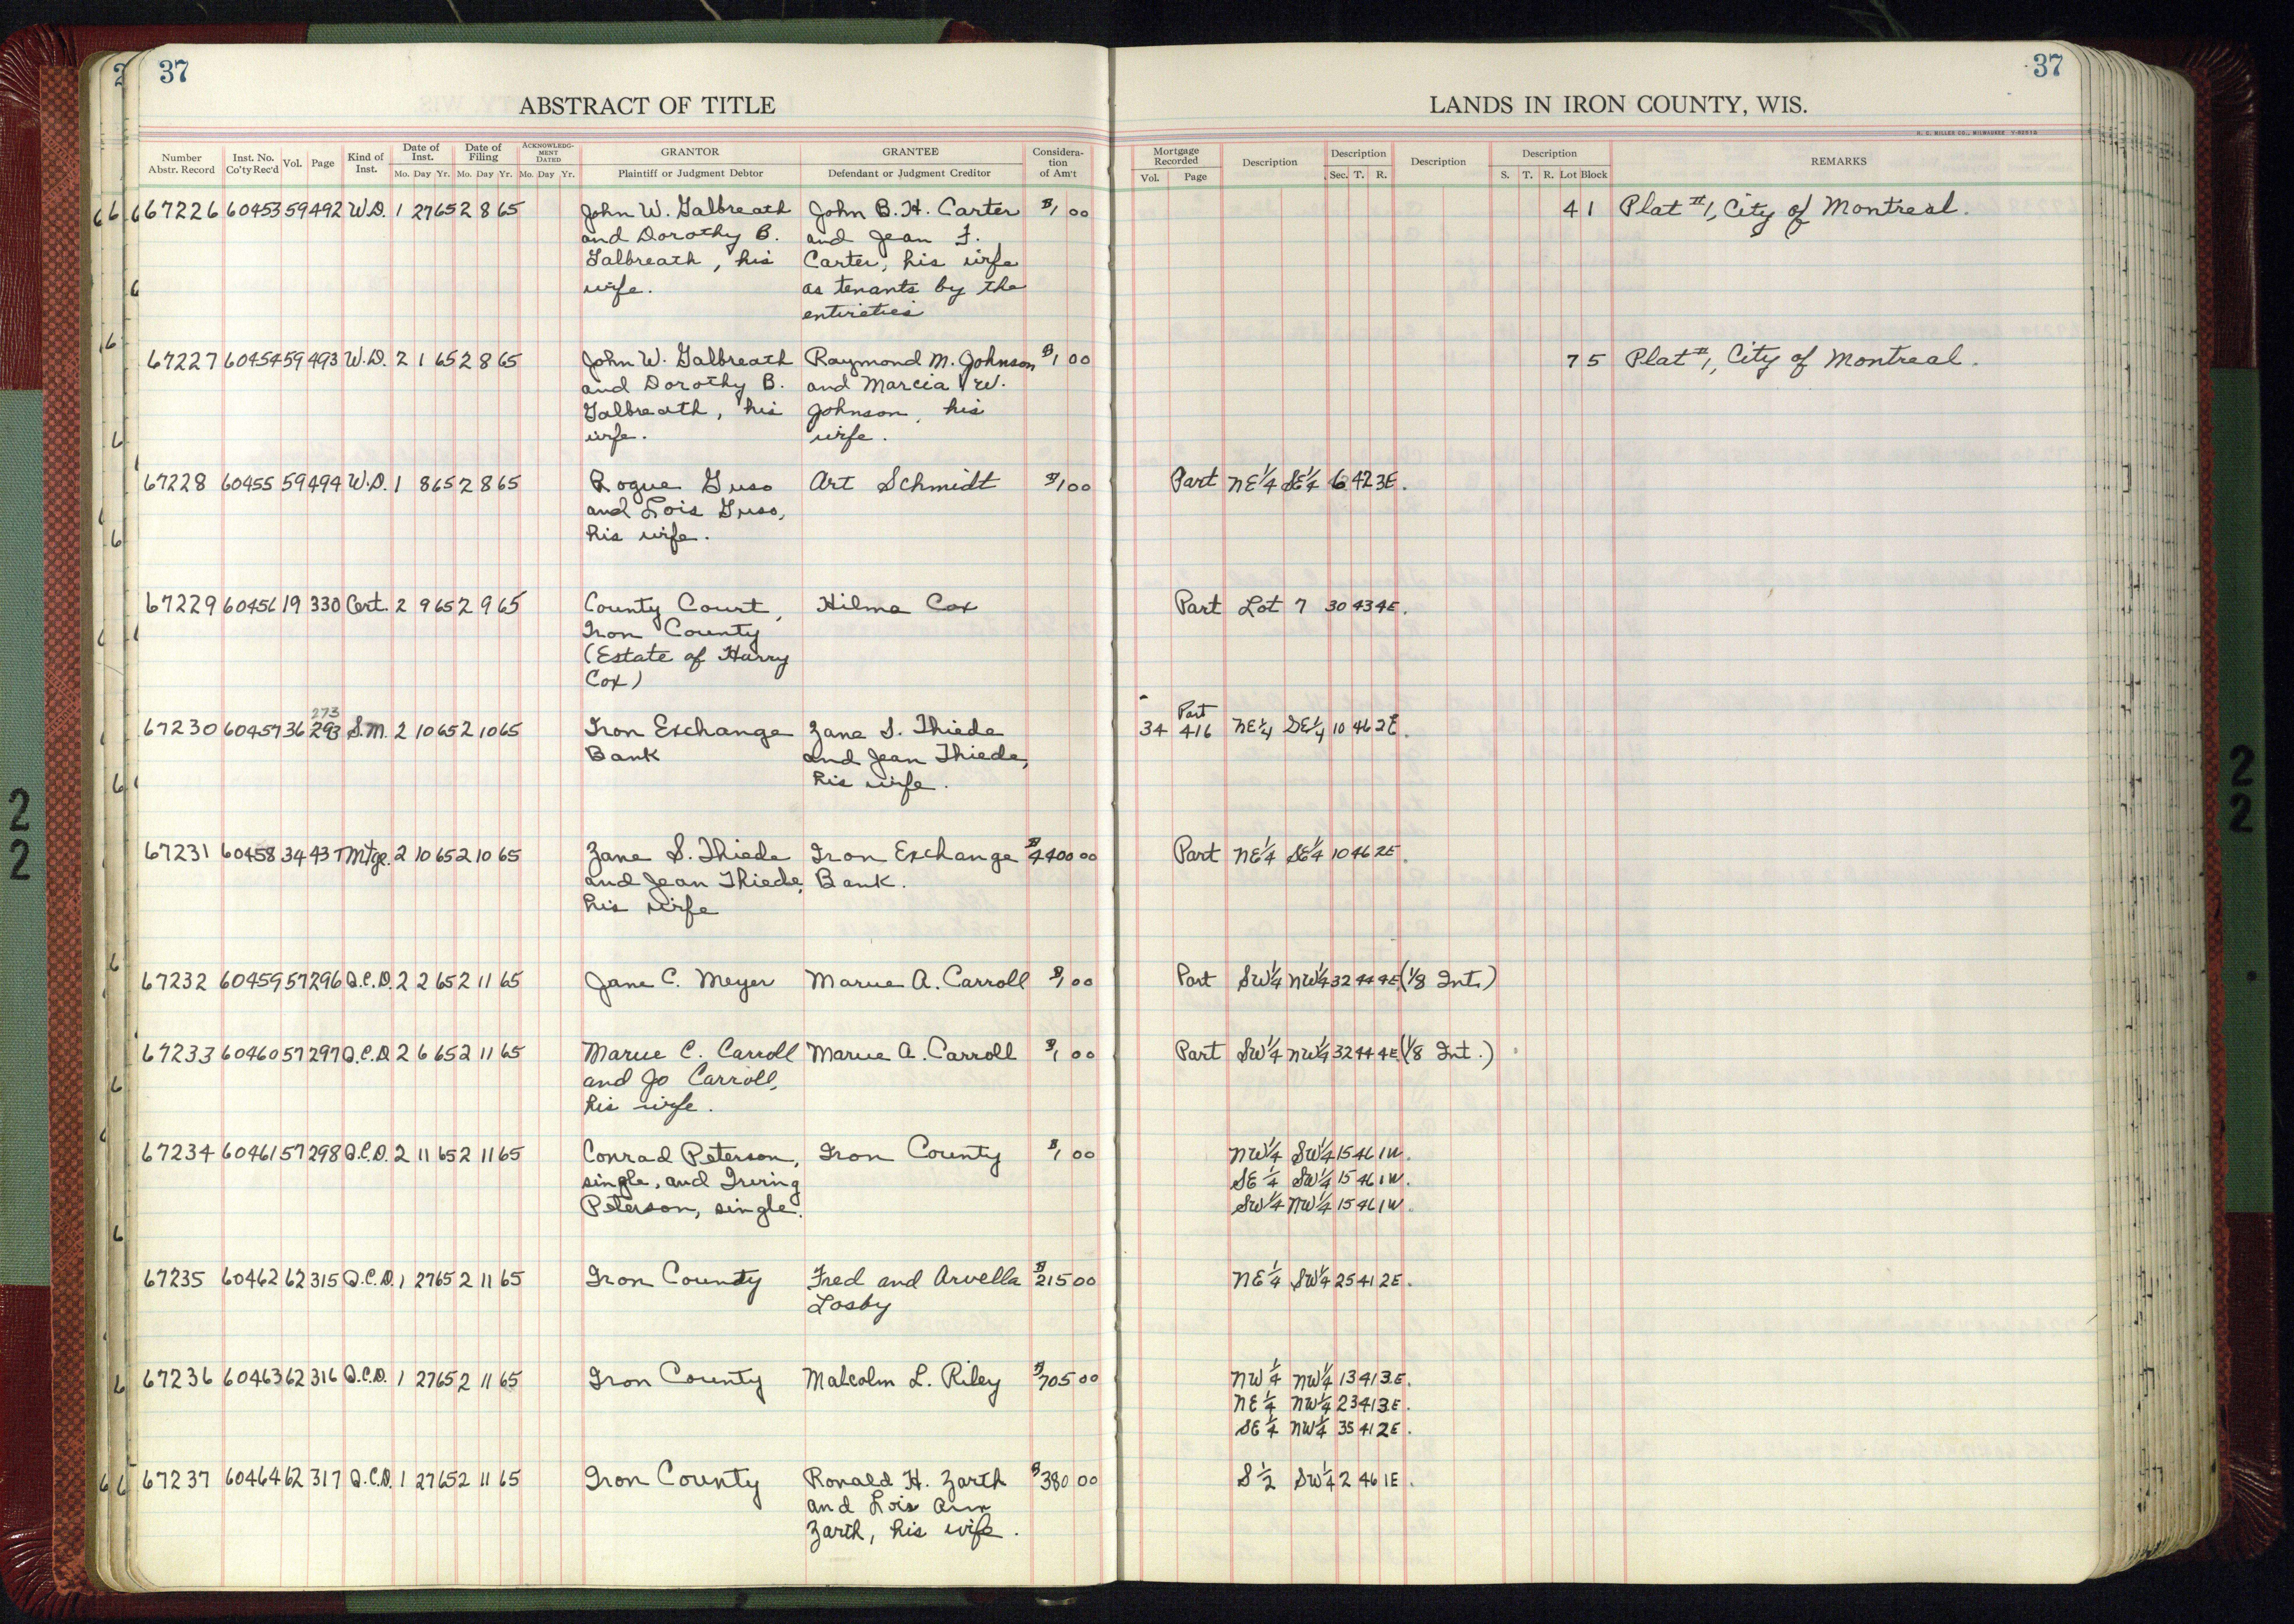 37
37
ABSTRACT OF TITLE
LANDS IN IRON COUNTY, WIS.
H. C. MILLER CO., MILWAUKEE
Number Abstr. Record Inst. No. Co'ty Rec'd Vol. Page Kind of Inst. Date of Inst. Mo. Day Yr. Date of Filing Mo. Day Yr. ACKNOWLEDGMENT DATED Mo. Day Yr. GRANTOR Plaintiff or Judgment Debtor GRANTEE Defendant or Judgment Creditor Consideration of Am't Mortgage Recorded Vol. Page Description Description Sec. T. R. Description Description S. T. R. Lot Block REMARKS
67226 60453 59 492 W.D. 1 27 65 2 8 65 John W. Galbreath John B. H. Carter $1 00 4 1 Plat #1, City of Montreal.
and Dorothy B. and Jean F.
Galbreath, his Carter, his wife
wife. as tenants by the
entireties
67227 60454 59 493 W.D. 2 1 65 2 8 65 John W. Galbreath Raymond M. Johnson $1 00 7 5 Plat #1, City of Montreal.
and Dorothy B. and Marcia W.
Galbreath, his Johnson, his
wife. wife.
67228 60455 59 494 W.D. 1 8 65 2 8 65 Rogue Guso Art Schmidt $1 00 Part NE 1/4 SE 1/4 6 42 3E.
and Lois Guso,
his wife.
67229 60456 19 330 Cert. 2 9 65 2 9 65 County Court, Hilma Cox Part Lot 7 30 43 4E.
Iron County
(Estate of Harry
Cox)
273 Part
67230 60457 36 293 S.M. 2 10 65 2 10 65 Iron Exchange Zane S. Thiede 34 416 NE 1/4 SE 1/4 10 46 2E.
Bank and Jean Thiede,
his wife.
67231 60458 34 437 Mtge. 2 10 65 2 10 65 Zane S. Thiede Iron Exchange $4400 00 Part NE 1/4 SE 1/4 10 46 2E.
and Jean Thiede, Bank.
his wife
67232 60459 57 296 Q.C.D. 2 2 65 2 11 65 Jane C. Meyer Marue A. Carroll $1 00 Part SW 1/4 NW 1/4 32 44 4E (1/8 Int.)
67233 60460 57 297 Q.C.D 2 6 65 2 11 65 Marue C. Carroll Marue A. Carroll $1 00 Part SW 1/4 NW 1/4 32 44 4E (1/8 Int.)
and Jo Carroll,
his wife.
67234 60461 57 298 Q.C.D. 2 11 65 2 11 65 Conrad Peterson, Iron County $1 00 NW 1/4 SW 1/4 15 46 1W.
single, and Irving SE 1/4 SW 1/4 15 46 1W.
Peterson, single. SW 1/4 NW 1/4 15 46 1W.
67235 60462 62 315 Q.C.D. 1 27 65 2 11 65 Iron County Fred and Arvella $215 00 NE 1/4 SW 1/4 25 41 2E.
Losby
67236 60463 62 316 Q.C.D. 1 27 65 2 11 65 Iron County Malcolm L. Riley $705 00 NW 1/4 NW 1/4 13 41 3E.
NE 1/4 NW 1/4 23 41 3E.
SE 1/4 NW 1/4 35 41 2E.
67237 60464 62 317 Q.C.D. 1 27 65 2 11 65 Iron County Ronald H. Zarth $380 00 S 1/2 SW 1/4 2 46 1E.
and Lois Ann
Zarth, his wife.
22
22